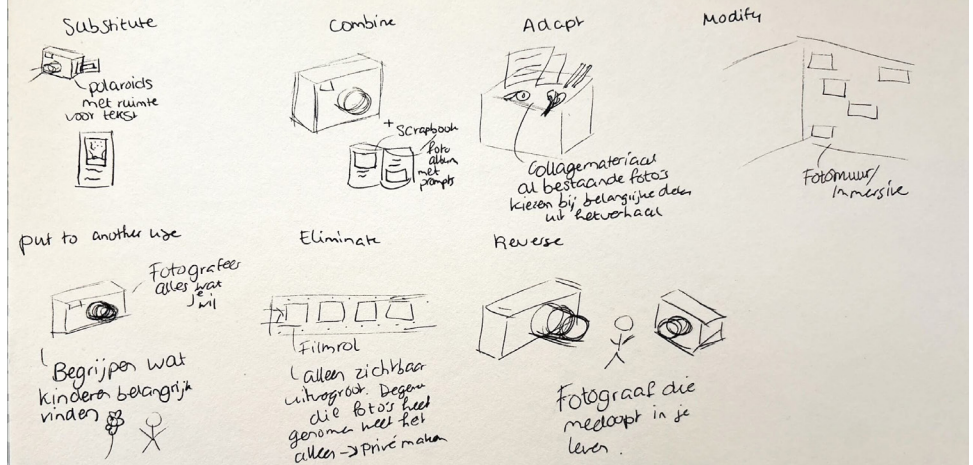 Substitute
polaroids
met ruimte
voor tekst
Combine
+
Scrapbook
foto
album
met
prompts
Adapt
Collagemateriaal
al bestaande foto's
kiezen bij belangrijke delen
uit het verhaal
Modify
Fotomuur/
Immersive
put to another use
Fotografeer
alles wat
je
wil
Begrijpen wat
kinderen belangrijk
vinden
Eliminate
Filmrol
alleen zichtbaar
uitvergroot. Degene
die foto's heeft
genomen weet het
alleen → Privé maken
Reverse
Fotograaf die
meeloopt in je
leven.